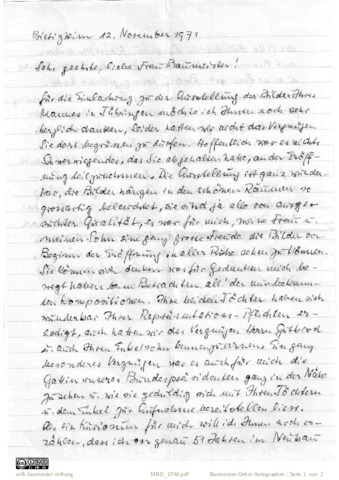 Bietigheim 12. November 1971
Sehr geehrte, liebe Frau Baumeister!
Für die Einladung zu der Ausstellung der Bilder Ihres
Mannes in Tübingen möchte ich Ihnen noch sehr
herzlich danken, leider hatten wir nicht das Vergnügen
Sie dort begrüssen zu dürfen. Hoffentlich war es nichts
Schwerwiegendes, das Sie abgehalten hatte, an der Eröff-
nung teilzunehmen. Die Ausstellung ist ganz wunder-
bar, die Bilder hängen in den schönen Räumen so
grossartig beleuchtet, sie sind ja alle von ausge-
suchter Qualität, es war für mich, meine Frau u.
meinen Sohn eine ganz grosse Freude die Bilder vor
Beginn der Eröffnung in aller Ruhe sehen zu können.
Sie können sich denken was für Gedanken mich be-
wegt haben beim Betrachten all' der mir bekann-
ten Kompositionen. Ihre beiden Töchter haben sich
wunderbar Ihrer Repräsentations-Pflichten er-
ledigt, auch hatten wir das Vergnügen Herrn Gutbrod
u. auch Ihren Enkelsohn kennenzulernen. Ein ganz
besonderes Vergnügen war es auch für mich die
Gattin unseres Bundespräsidenten ganz in der Nähe
zu sehen u. wie sie geduldig sich mit Ihren Töchtern
u. dem Enkel für Aufnahme bereitstellen liess.
Als ein Kuriosum für mich will ich Ihnen noch er-
zählen, dass ich vor genau 51 Jahren im Neubau
willi baumeister stiftung
MBO_0746.pdf
Baumeister-Dexler Autographen : Seite 1 von 2